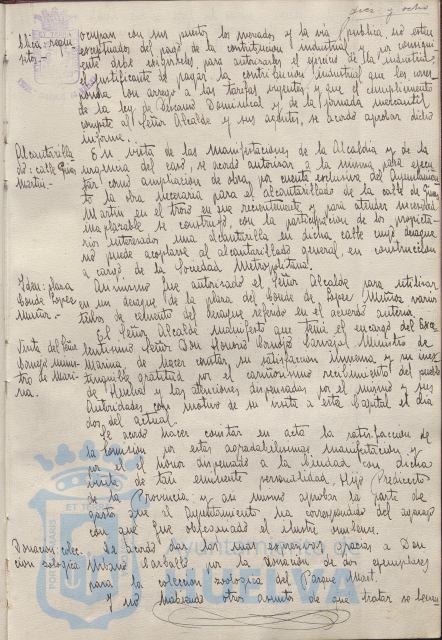 diez y ocho
blica: requi-
sitos.-
ocupan con sus puestos los mercados y la vía pública no están
exceptuados del pago de la contribución industrial y por consiguiente
debe exigírseles para autorizarles el ejercicio de la industria,
el justificante de pagar la contribución industrial que les corres-
ponda con arreglo a las tarifas vigentes y que el cumplimiento
de la ley de Descanso Dominical y de la jornada mercantil
compete al Señor Alcalde y sus agentes, se acordó aprobar dicho
informe.
Alcantarilla
do: calle Ginés
Martín.-
En vista de las manifestaciones de la Alcaldía y de la
urgencia del caso, se acordó autorizar a la misma para ejecu-
tar como ampliación de obra, por cuenta exclusiva del Ayuntamien-
to la obra necesaria para el alcantarillado de la calle de Ginés
Martín en el trozo en que recientemente y para atender necesidad
inaplazable se construyó con la participación de los propieta-
rios interesados una alcantarilla en dicha calle cuyo desagüe
no puede acoplarse al alcantarillado general, en construcción
a cargo de la Sociedad Metropolitana.
Idem: plaza
Conde López
Muñoz.-
Asimismo fue autorizado el Señor Alcalde para utilizar
en un desagüe de la plaza del Conde de López Muñoz varios
tubos de cemento del desagüe referido en el acuerdo anterior.
Visita del Señor
Cornejo minis-
tro de Mari-
na.
El Señor Alcalde manifestó que tenía el encargo del Exce-
lentísimo Señor Don Honorio Cornejo Carvajal Ministro de
Marina, de hacer constar su satisfacción inmensa y su inex-
tinguible gratitud por el cariñosísimo recibimiento del pueblo
de Huelva y las atenciones dispensadas por el mismo y sus
Autoridades con motivo de su visita a esta Capital el día
dos del actual.
Se acordó hacer constar en acta la satisfacción de
la comisión por estas agradabilísimas manifestaciones y
por el honor dispensado a la Ciudad con dicha
visita de tan eminente personalidad, Hijo Predilecto
de la Provincia; y así mismo aprobar la parte de
gasto que al Ayuntamiento ha correspondido del agasajo
con que fue obsequiado el ilustre
Donación: colec-
ción zoológica
Se acordó dar las más expresivas gracias a Don
Urbano Carballo por la donación de dos ejemplares
para la colección zoológica del Parque Moret.
Y no habiendo otros asuntos de que tratar se levan
Ayuntamiento de
HUELVA